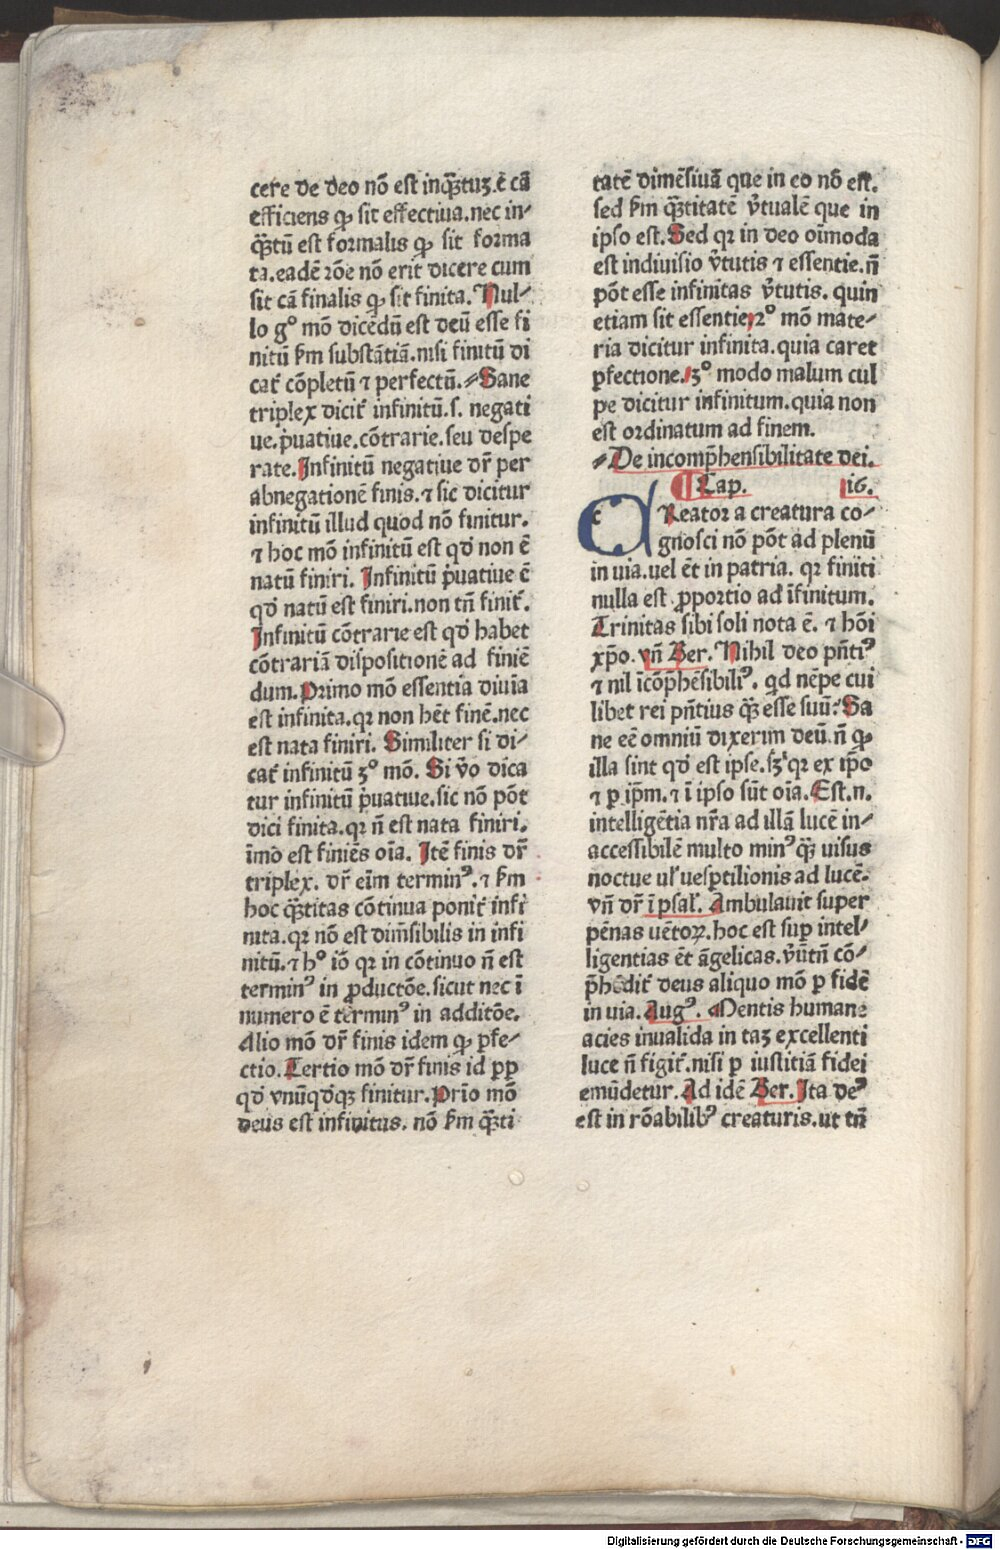 cere de deo nō est inq̄ꝫtuꝫ.ē cā
efficiens ꝙ sit effectiua.nec in⸗
q̄ꝫtū est formalis ꝙ sit forma
ta.eadē rōe nō erit dicere cum
sit cā finalis ꝙ sit finita. Nul⸗
lo gͦ mō dicēdū est deū esse fi
nitū ẜm substātiā.nisi finitū di
cat᷑ cōpletū ⁊ perfectū.⸗Sane
triplex dicit᷑ infinitū.s. negati
ue.p̄uatiue.cōtrarie.seu despe
rate.Infinitū negatiue dr̄ per
abnegationē finis.⁊ sic dicitur
infinitū illud quod nō finitur.
⁊ hoc mō infinitū est qd̄ non ē
natū finiri. Infinitū p̄uatiue ē
qd̄ natū est finiri.non tn̄ finit᷑.
Infinitū cōtrarie est qd̄ habet
cōtrariā dispositionē ad finiē
dum.Primo mō essentia diuīa
est infinita.qꝛ non hēt finē.nec
est nata finiri. Similiter si di⸗
cat᷑ infinitū ꝫͦ mō. Si v̄o dica
tur infinitū p̄uatiue.sic nō pōt
dici finita.qꝛ n̄ est nata finiri.
īmo est finiēs oīa. Itē finis dr̄
triplex. dr̄ eīm terminꝰ.⁊ ẜm
hoc q̄ꝫtitas cōtinua ponit᷑ infi
nita.qꝛ nō est diuīsibilis in infi
nitū.⁊ hͦ iō qꝛ in cōtinuo n̄ est
terminꝰ in ꝓductōe.sicut nec ī
numero ē terminꝰ in additōe.
Alio mō dr̄ finis idem ꝙ ꝑfe⸗
ctio.Tertio mō dr̄ finis id ꝓp
qd̄ vnūqd̄qꝫ finitur.Prīo mō
deus est infinitus. nō ẜm q̄ꝫti
tatē dimēsiuā que in eo nō est.
sed ẜm q̄ꝫtitatē v̓tualē que in
ipso est.Sed qꝛ in deo oīmoda
est indiuisio v̓tutis ⁊ essentie.n̄
pōt esse infinitas v̓tutis. quin
etiam sit essentie.2ͦ mō mate⸗
ria dicitur infinita.quia caret
ꝑfectione.ꝫͦ modo malum cul
pe dicitur infinitum.quia non
est ordinatum ad finem.
⸗De incomp̄hensibilitate dei.
¶Cap. i6.
CReator a creatura co⸗
gnosci nō pōt ad plenū
in uia.uel ēt in patria. qꝛ finiti
nulla est ꝓportio ad īfinitum.
Trinitas sibi soli nota ē. ⁊ hōi
xp̄o. vn̄ Ber. Nihil deo pn̄tiꝰ
⁊ nil īcōp̄hēsibiliꝰ. qd nēpe cui
libet rei pn̄tius q̄ꝫ esse suū:Sa
ne eē omniū dixerim deū.n̄ ꝙ
illa sint qd̄ est ipse.sꝫ qꝛ ex ip̄o
⁊ ꝑ ip̄m.⁊ ī ipso sūt oīa.Est.n.
intelligētia nr̄a ad illā lucē in⸗
accessibilē multo minꝰ q̄ꝫ uisus
noctue ul̓ uesp̱tilionis ad lucē.
vn̄ dr̄ ī psal̓. Ambulauit super
pēnas uētoꝝ.hoc est suꝑ intel⸗
ligentias ēt āgelicas.v̓ūtn̄ cō⸗
p̄hēdit᷑ deus aliquo mō ꝑ fidē
in uia.Augꝰ. Mentis humane
acies inualida in taꝫ excellenti
luce n̄ figit᷑.nisi ꝑ iustitiā fidei
emūdetur. Ad idē Ber.Ita deꝰ
est in rōabilibꝰ creaturis.ut tn̄
Digitalisierung gefördert durch die Deutsche Forschungsgemeinschaft - DFG